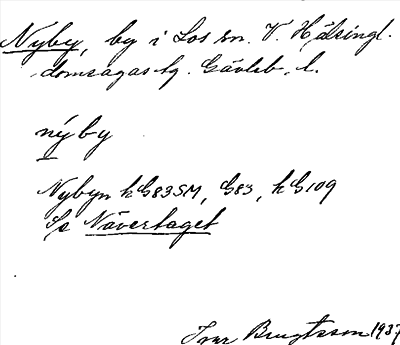 Nyby, by i Los sn. V. Hälsingl.
domsagas tg. Gävleb. l.
nýby
Nybyn kG83SM, G83, kG109
Se Näverlaget
Ivar Bengtsson 1937